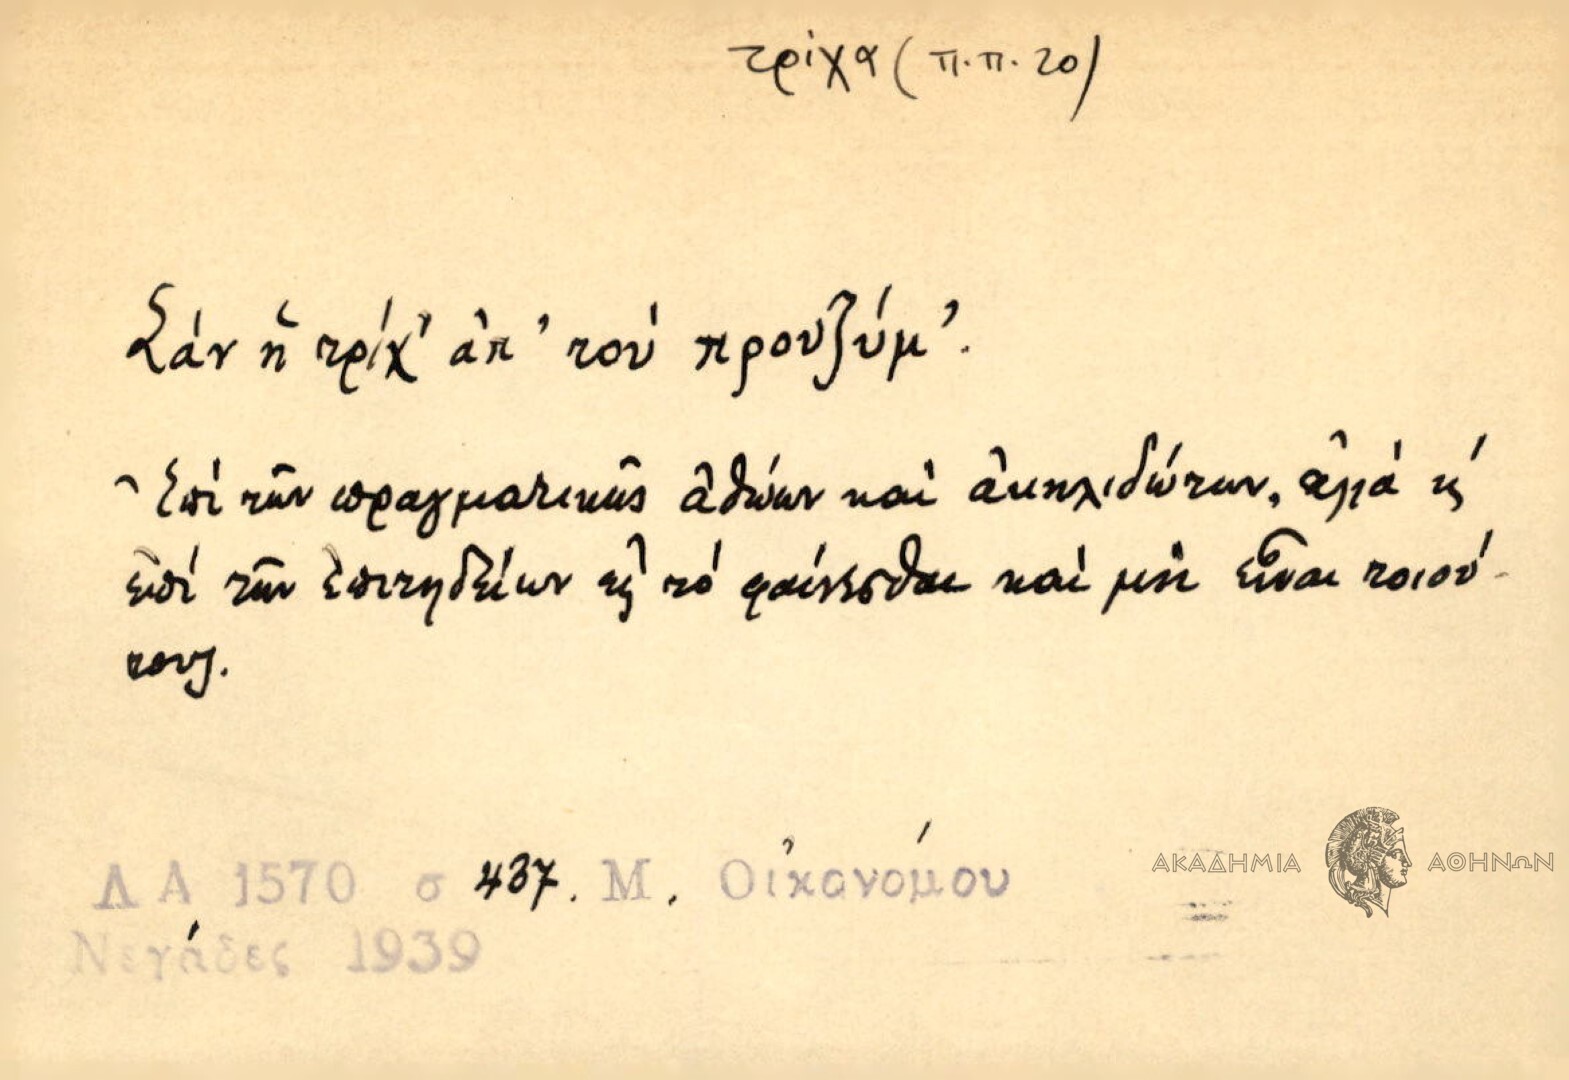 τρίχα (π.π. 20)
Σάν ἡ τρίχ' ἀπ' τού προυζύμ'.
Ἐπί τῶν πραγματικῶς ἀθώων καί ἀκηλιδώτων, ἀλλά κ
ἐπί τῶν ἐπιτηδείων εἰς τό φαίνεσθαι καί μή εἶναι τοιού-
τους.
Λ Α 1570 σ 437. Μ. Οἰκονόμου
Νεγάδες 1939
ΑΚΑΔΗΜΙΑ ΑΘΗΝΩΝ